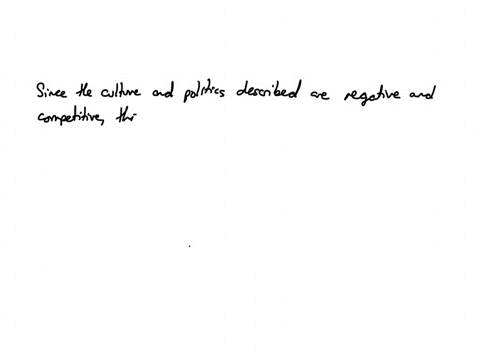 Since the culture and politics described are negative and
competitive, thi